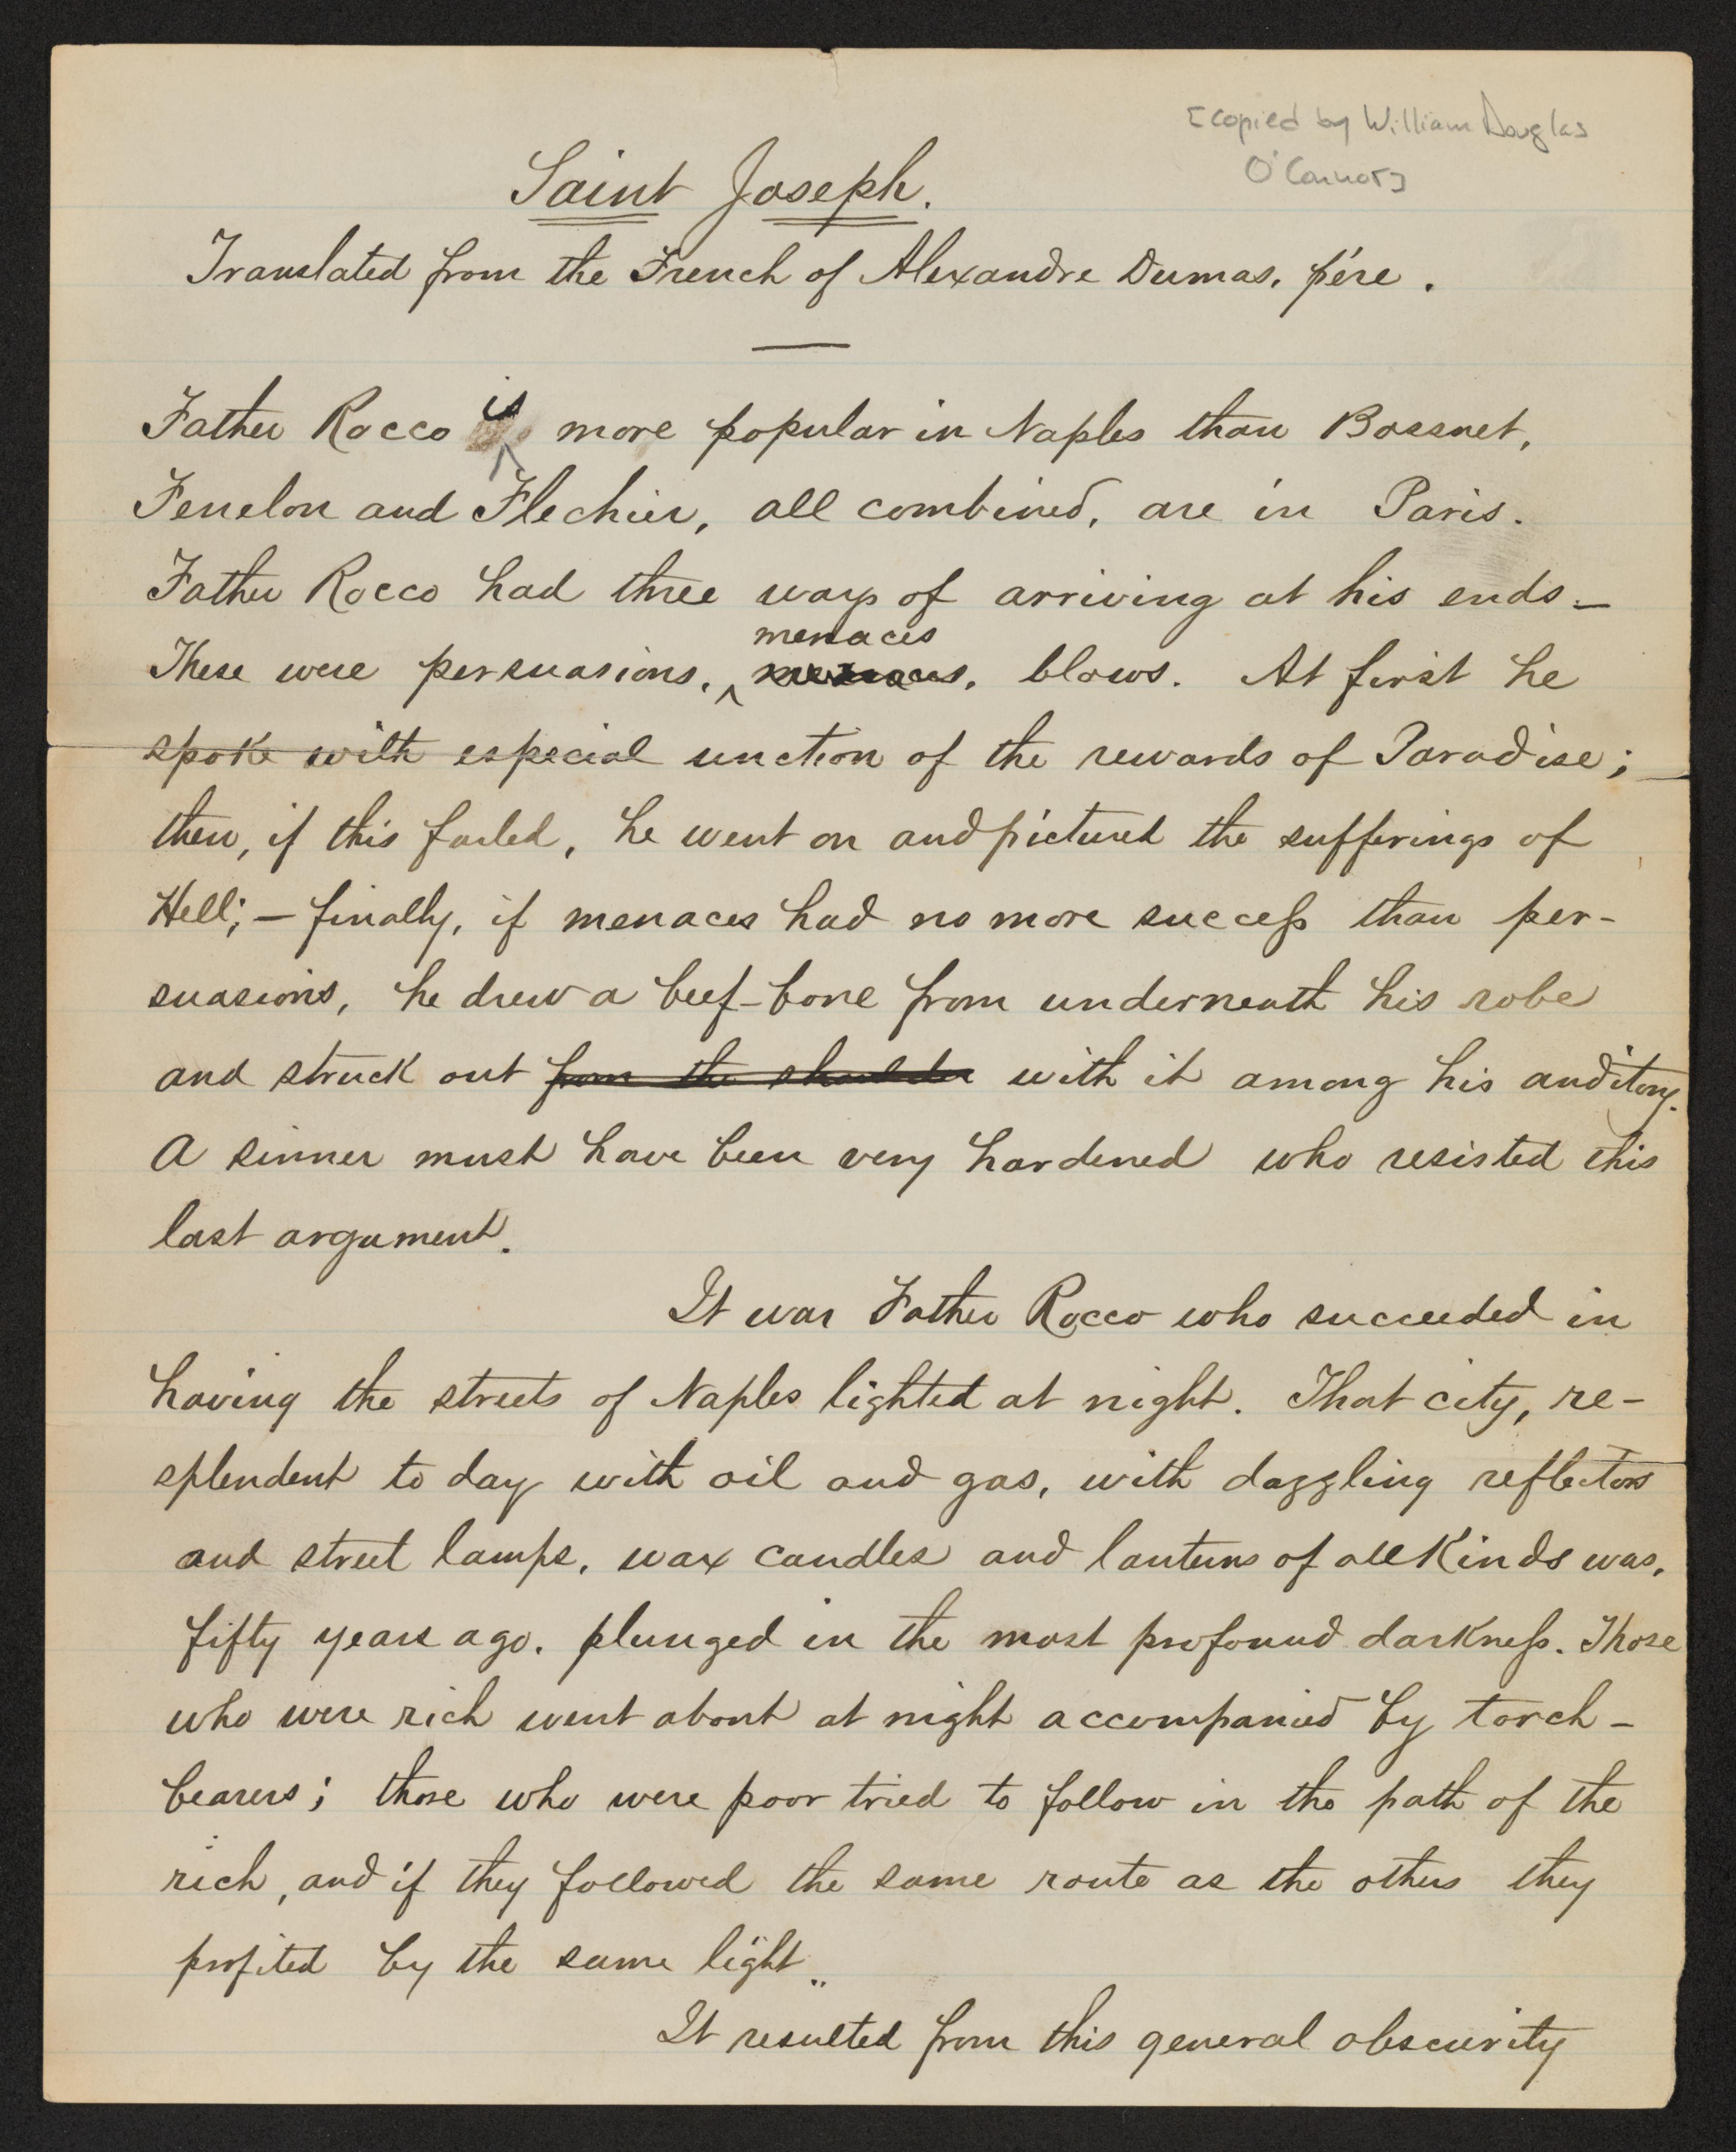 [copied by William Douglas
O'Connor]
Saint Joseph.
Translated from the French of Alexandre Dumas, pére.
Father Rocco is more popular in Naples than Bossuet,
Fenelon and Flechier, all combined, are in Paris.
Father Rocco had three ways of arriving at his ends—
menaces
These were persuasions, menaces, blows. At first he
spoke with especial unction of the rewards of Paradise;
then, if this failed, he went on and pictured the sufferings of
Hell;— finally, if menaces had no more success than per-
suasions, he drew a beef-bone from underneath his robe
and struck out from the shoulder with it among his auditory.
A sinner must have been very hardened who resisted this
last argument.
It was Father Rocco who succeeded in
having the streets of Naples lighted at night. That city, re-
splendent to day with oil and gas, with dazzling reflectors
and street lamps, wax candles and lanterns of all kinds was,
fifty years ago, plunged in the most profound darkness. Those
who were rich went about at night accompanied by torch-
bearers; those who were poor tried to follow in the path of the
rich, and if they followed the same route as the others they
profited by the same light.
It resulted from this general obscurity